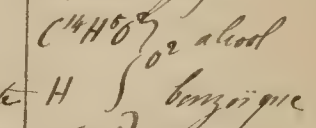 C¹⁴H⁵O² } O² alcool
H } benzoïque